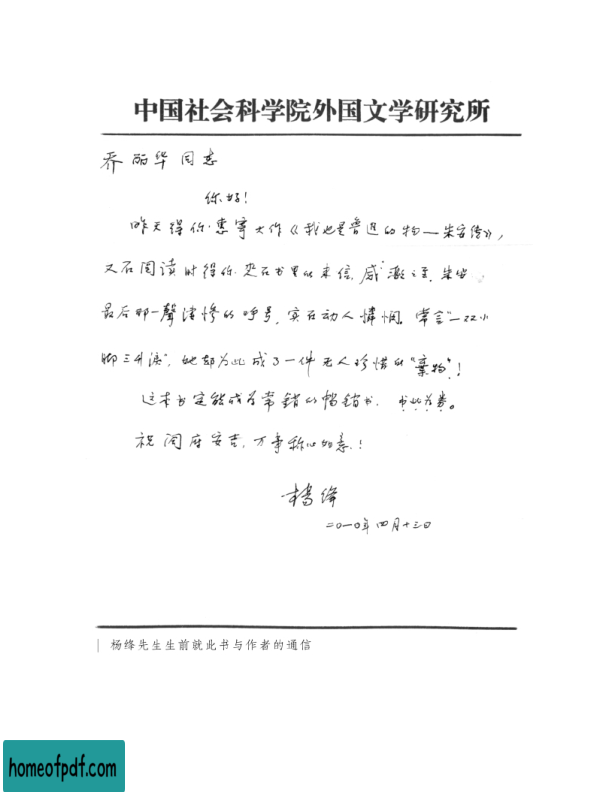 中国社会科学院外国文学研究所
乔丽华同志
你好！
昨天得你惠寄大作《我也是鲁迅的物—朱安传》，
又在阅读时得你夹在书里的来信，感激之至。朱安
最后那一聲凄惨的呼号，实在动人憐悯。常言“一双小
脚三升泪”，她却为此成了一件无人珍惜的“棄物”！
这本书定能成为常銷的畅銷书，书此为券。
祝阅府安吉，万事称心如意！
杨绛
二〇一〇年四月十三日
杨绛先生生前就此书与作者的通信
homeofpdf.com